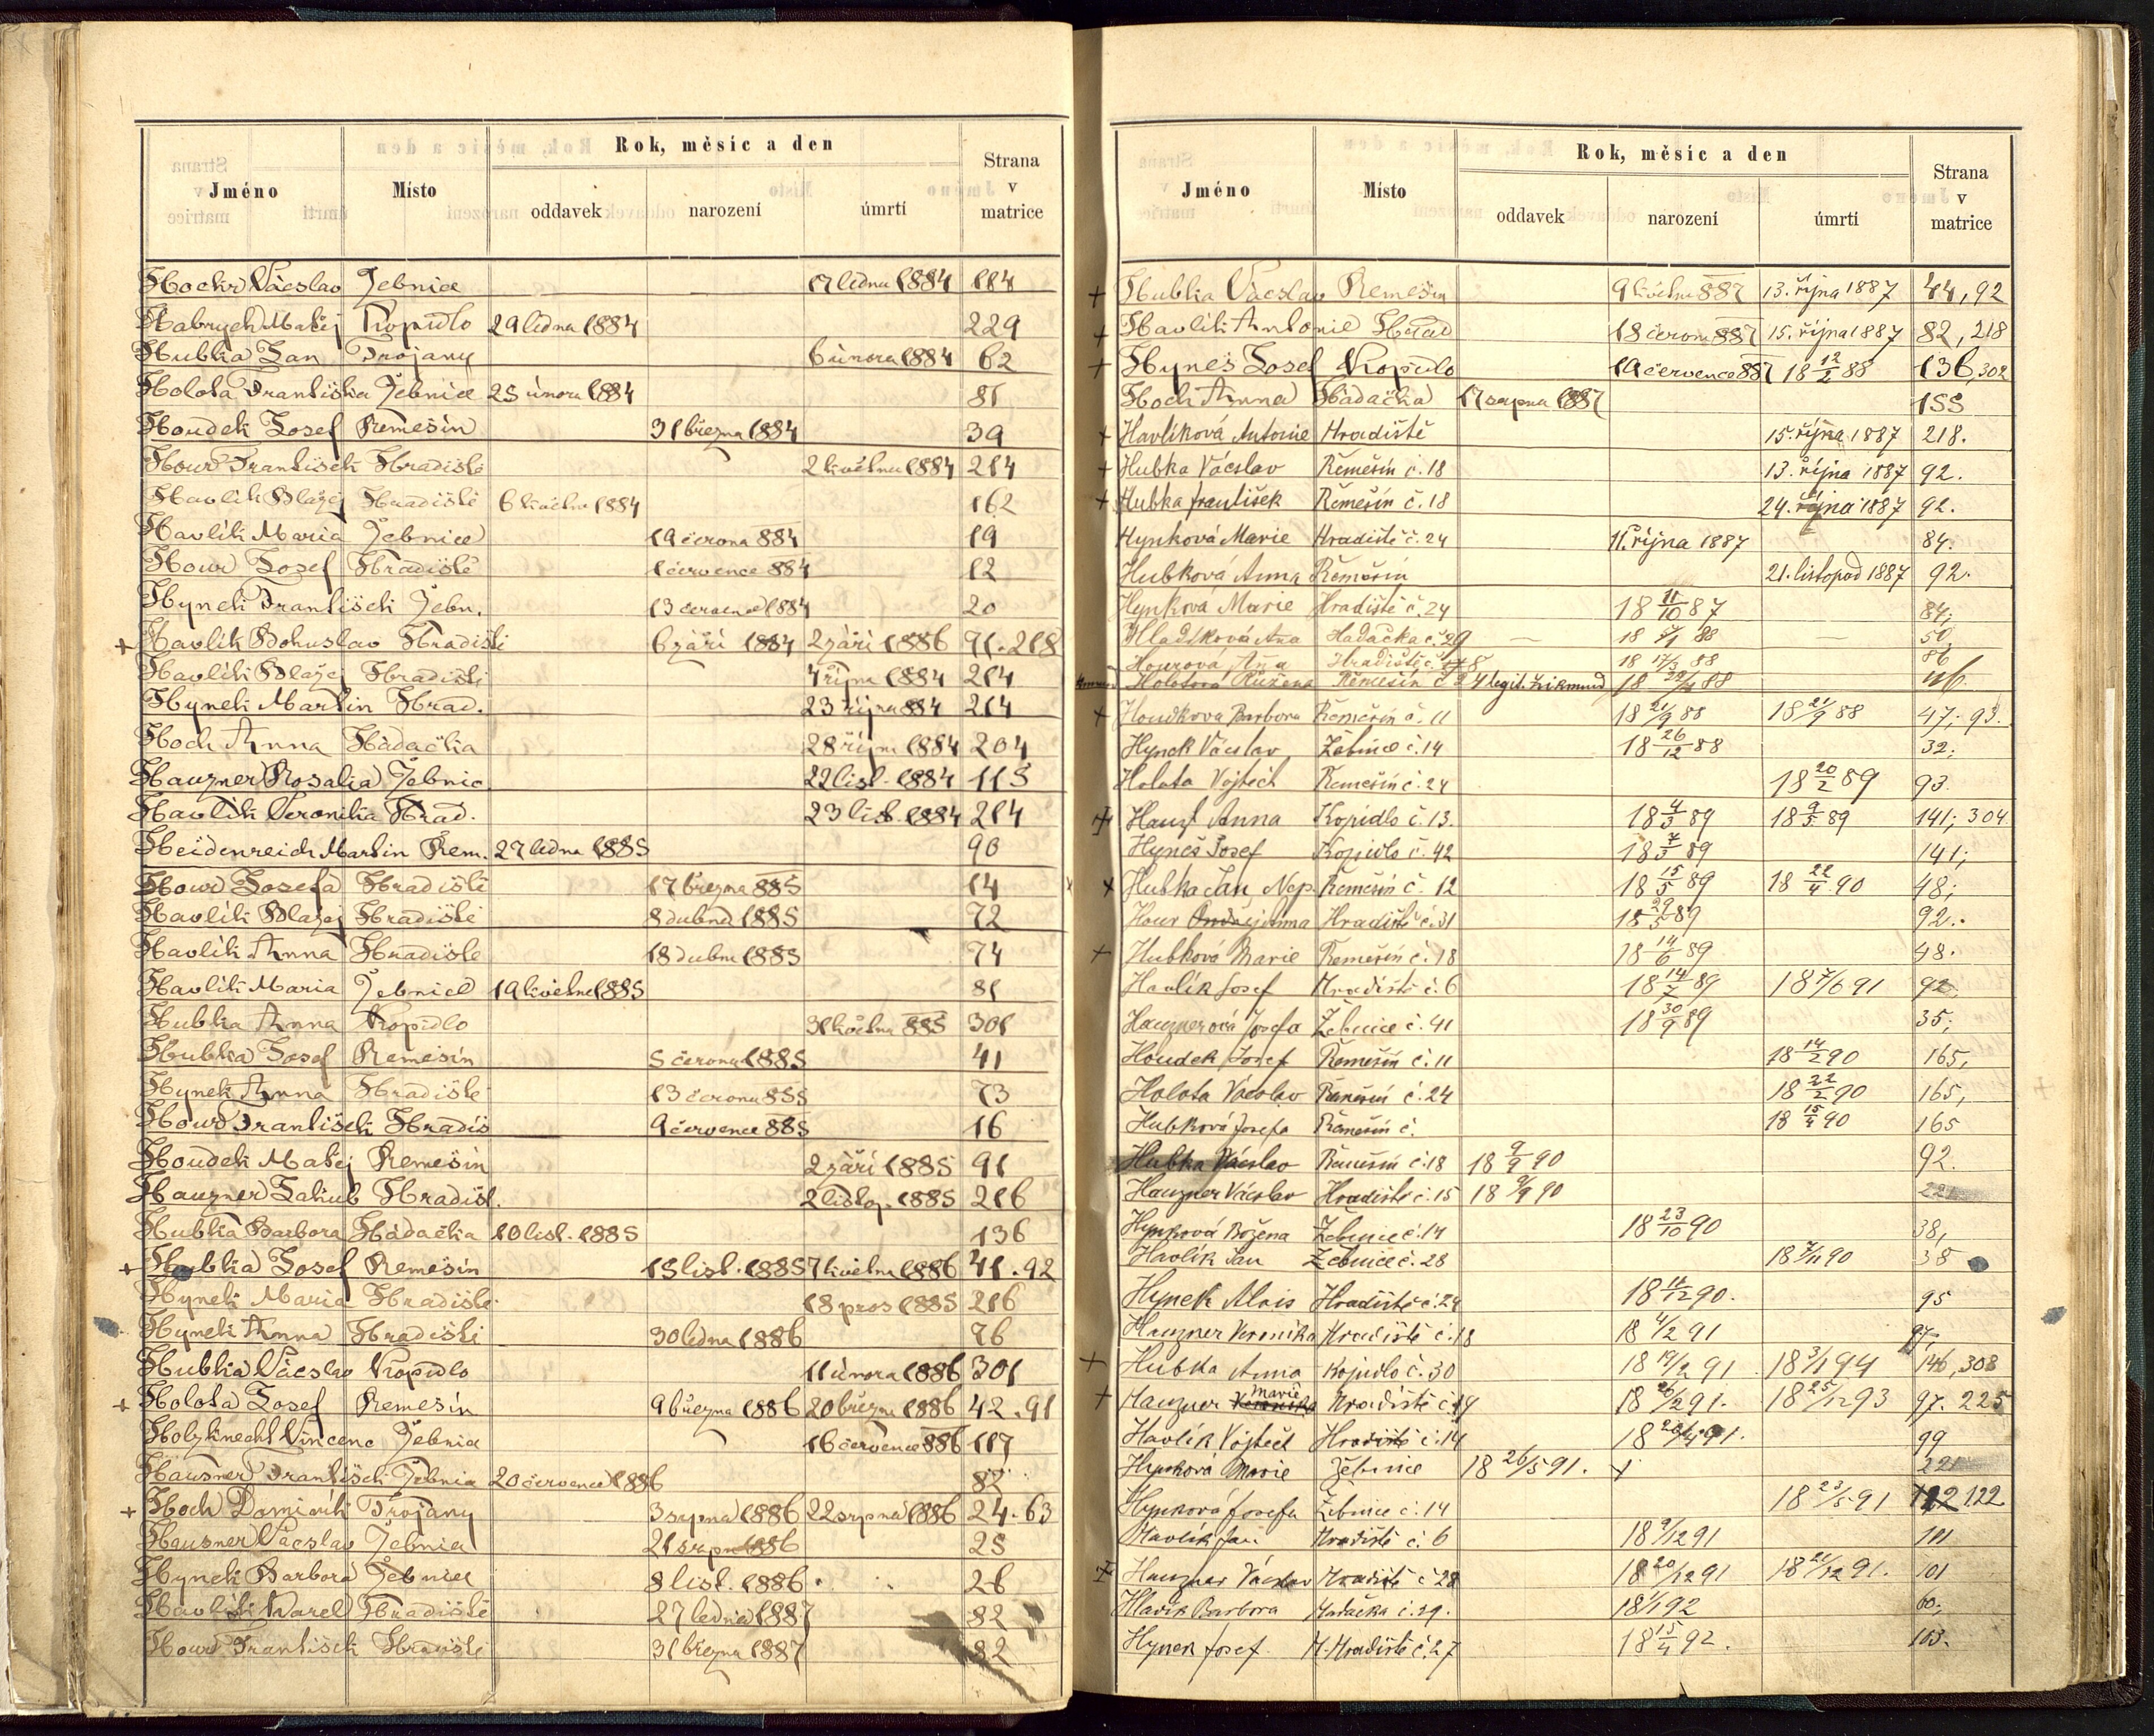 Rok, měsíc a den
Jméno Místo oddavek narození úmrtí Strana v matrice
Hochr Václav Žebnice 17 ledna 1884 114
Habrych Matěj Kopidlo 29 ledna 1884 229
Hubka Jan Trojany 6 února 1884 62
Holota Františka Žebnice 25 února 1884 81
Houdek Josef Remešín 31 března 1884 39
Hour František Hradiště 2 května 1884 214
Havlík Blažej Hradiště 6 května 1884 162
Havlík Maria Žebnice 19 června 884 19
Hour Josef Hradiště 1 července 884 12
Hynek František Žebn. 13 července 1884 20
+ Havlík Bohuslav Hradiště 6 září 1884 2 září 1886 91.218
Havlík Blažej Hradiště 4 října 1884 214
Hynek Martin Hrad. 23 října 884 214
Hoch Anna Hádačka 28 říjn 1884 204
Hauzner Rosalia Žebnic 22 list. 1884 115
Havlík Veronika Hrad. 23 list. 1884 214
Heidenreich Martin Rem. 27 ledna 1885 90
Hour Josefa Hradiště 17 března 885 14
Havlík Blažej Hradiště 8 dubna 1885 72
Havlík Anna Hradiště 18 dubna 1885 74
Havlík Maria Žebnice 19 května 1885 81
Hubka Anna Kopidlo 31 května 885 301
Hubka Josef Remešín 5 června 1885 41
Hynek Anna Hradiště 13 června 885 73
Hour František Hradiš 9 července 885 16
Houdek Matěj Remešín 2 září 1885 91
Hauzner Jakub Hradišt. 2 listop. 1885 216
Hubka Barbora Hádačka 10 list. 1885 136
+ Hubka Josef Remešín 15 list. 1885 7 května 1886 41.92
Hynek Maria Hradiště 18 pros 1885 216
Hynek Anna Hradiště 30 ledna 1886 76
Hubka Václav Kopidlo 11 února 1886 301
+ Holota Josef Remešín 9 března 1886 20 březn 1886 42.91
Holzknecht Vincenc Žebnic 16 července 886 117
Hausner František Žebnic 20 července 1886 82
+ Hoch Dominik Trojany 3 srpna 1886 22 srpna 1886 24.63
Hausner Václav Žebnice 21 srpn 1886 25
Hynek Barbora Žebnice 8 list. 1886 26
Havlík Karel Hradiště 27 ledna 1887 82
Hour František Hradiště 31 března 1887 82
Rok, měsíc a den
Jméno Místo oddavek narození úmrtí Strana v matrice
+ Hubka Václav Remešín 9 května 887 13. října 1887 44, 92
+ Havlík Antonie Hrad 18 červn 887 15. října 1887 82, 218
+ Hyneš Josef Kopidlo 19 července 887 18 12/2 88 136, 302
Hoch Anna Hádačka 17 srpna 1887 155
+ Havlíková Antonie Hradiště 15. října 1887 218.
+ Hubka Václav Řemešín č. 18 13. října 1887 92.
+ Hubka František Řemešín č. 18 24. října 1887 92.
Hynková Marie Hradiště č. 24 11. října 1887 84.
Hubková Anna Řemešín 21. listopad 1887 92.
Hynková Marie Hradiště č. 24 18 11/10 87 84;
Hladíková Aňa Hadačka č. 29 — 18 5/1 88 — 50
Hourová Aňa Hradiště č. 8 18 17/3 88 86
Holotová Růžena Řemešín č 24 legit. Zikmund 18 29/4 88
+ Houdkova Barbora Řemešín č. 11 18 21/9 88 18 21/9 88 47; 93.
Hynek Václav Žebnice č. 14 18 26/12 88 32;
Holota Vojtěch Řemešín č. 24 18 20/2 89 93.
+ Hauzl Anna Kopidlo č. 13. 18 4/3 89 18 9/5 89 141; 304
Hyneš Josef Kopidlo č. 42 18 7/3 89 141;
+ Hubka Jan Nep. Řemešín č. 12 18 15/5 89 18 22/4 90 48;
Hour Anna Hradiště č. 31 18 29/5 89 92.
+ Hubková Marie Řemešín č. 18 18 14/6 89 48.
Havlík Josef Hradiště č. 6 18 14/7 89 18 7/6 91 92.
Hauznerová Josefa Žebnice č. 41 18 30/9 89 35;
Houdek Josef Řemešín č. 11 18 14/2 90 165,
Holota Václav Řemešín č. 24 18 22/2 90 165,
Hubková Josefa Řemešín č. 18 15/4 90 165
Hubka Václav Řemešín č. 18 18 9/9 90 92.
Hauzner Václav Hradiště č. 15 18 9/9 90 221
Hynková Božena Žebnice č. 14 18 23/10 90 38,
Havlík Jan Žebnice č. 28 18 7/11 90 38
Hynek Alois Hradiště č. 24 18 11/12 90. 95
Hauzner Veronika Hradiště č. 18 18 4/2 91 97.
+ Hubka Anna Kopidlo č. 30 18 19/2 91 18 3/1 94 146, 308
+ Hauzner Marie Hradiště č. 19 18 26/2 91. 18 25/12 93 97. 225
Havlík Vojtěch Hradiště č. 14 18 26/4 91. 99
Hynková Marie Žebnice 18 26/5 91. + 221
Hynková Josefa Žebnice č. 14 18 23/5 91 122
Havlík Jan Hradiště č. 6 18 9/12 91 101
+ Hauzner Václav Hradiště č 28 18 20/12 91 18 21/12 91. 101
Hlavík Barbora Hadačka č. 29. 18 1/1 92 60;
Hynek Josef H. Hradiště č. 27 18 15/4 92. 103.